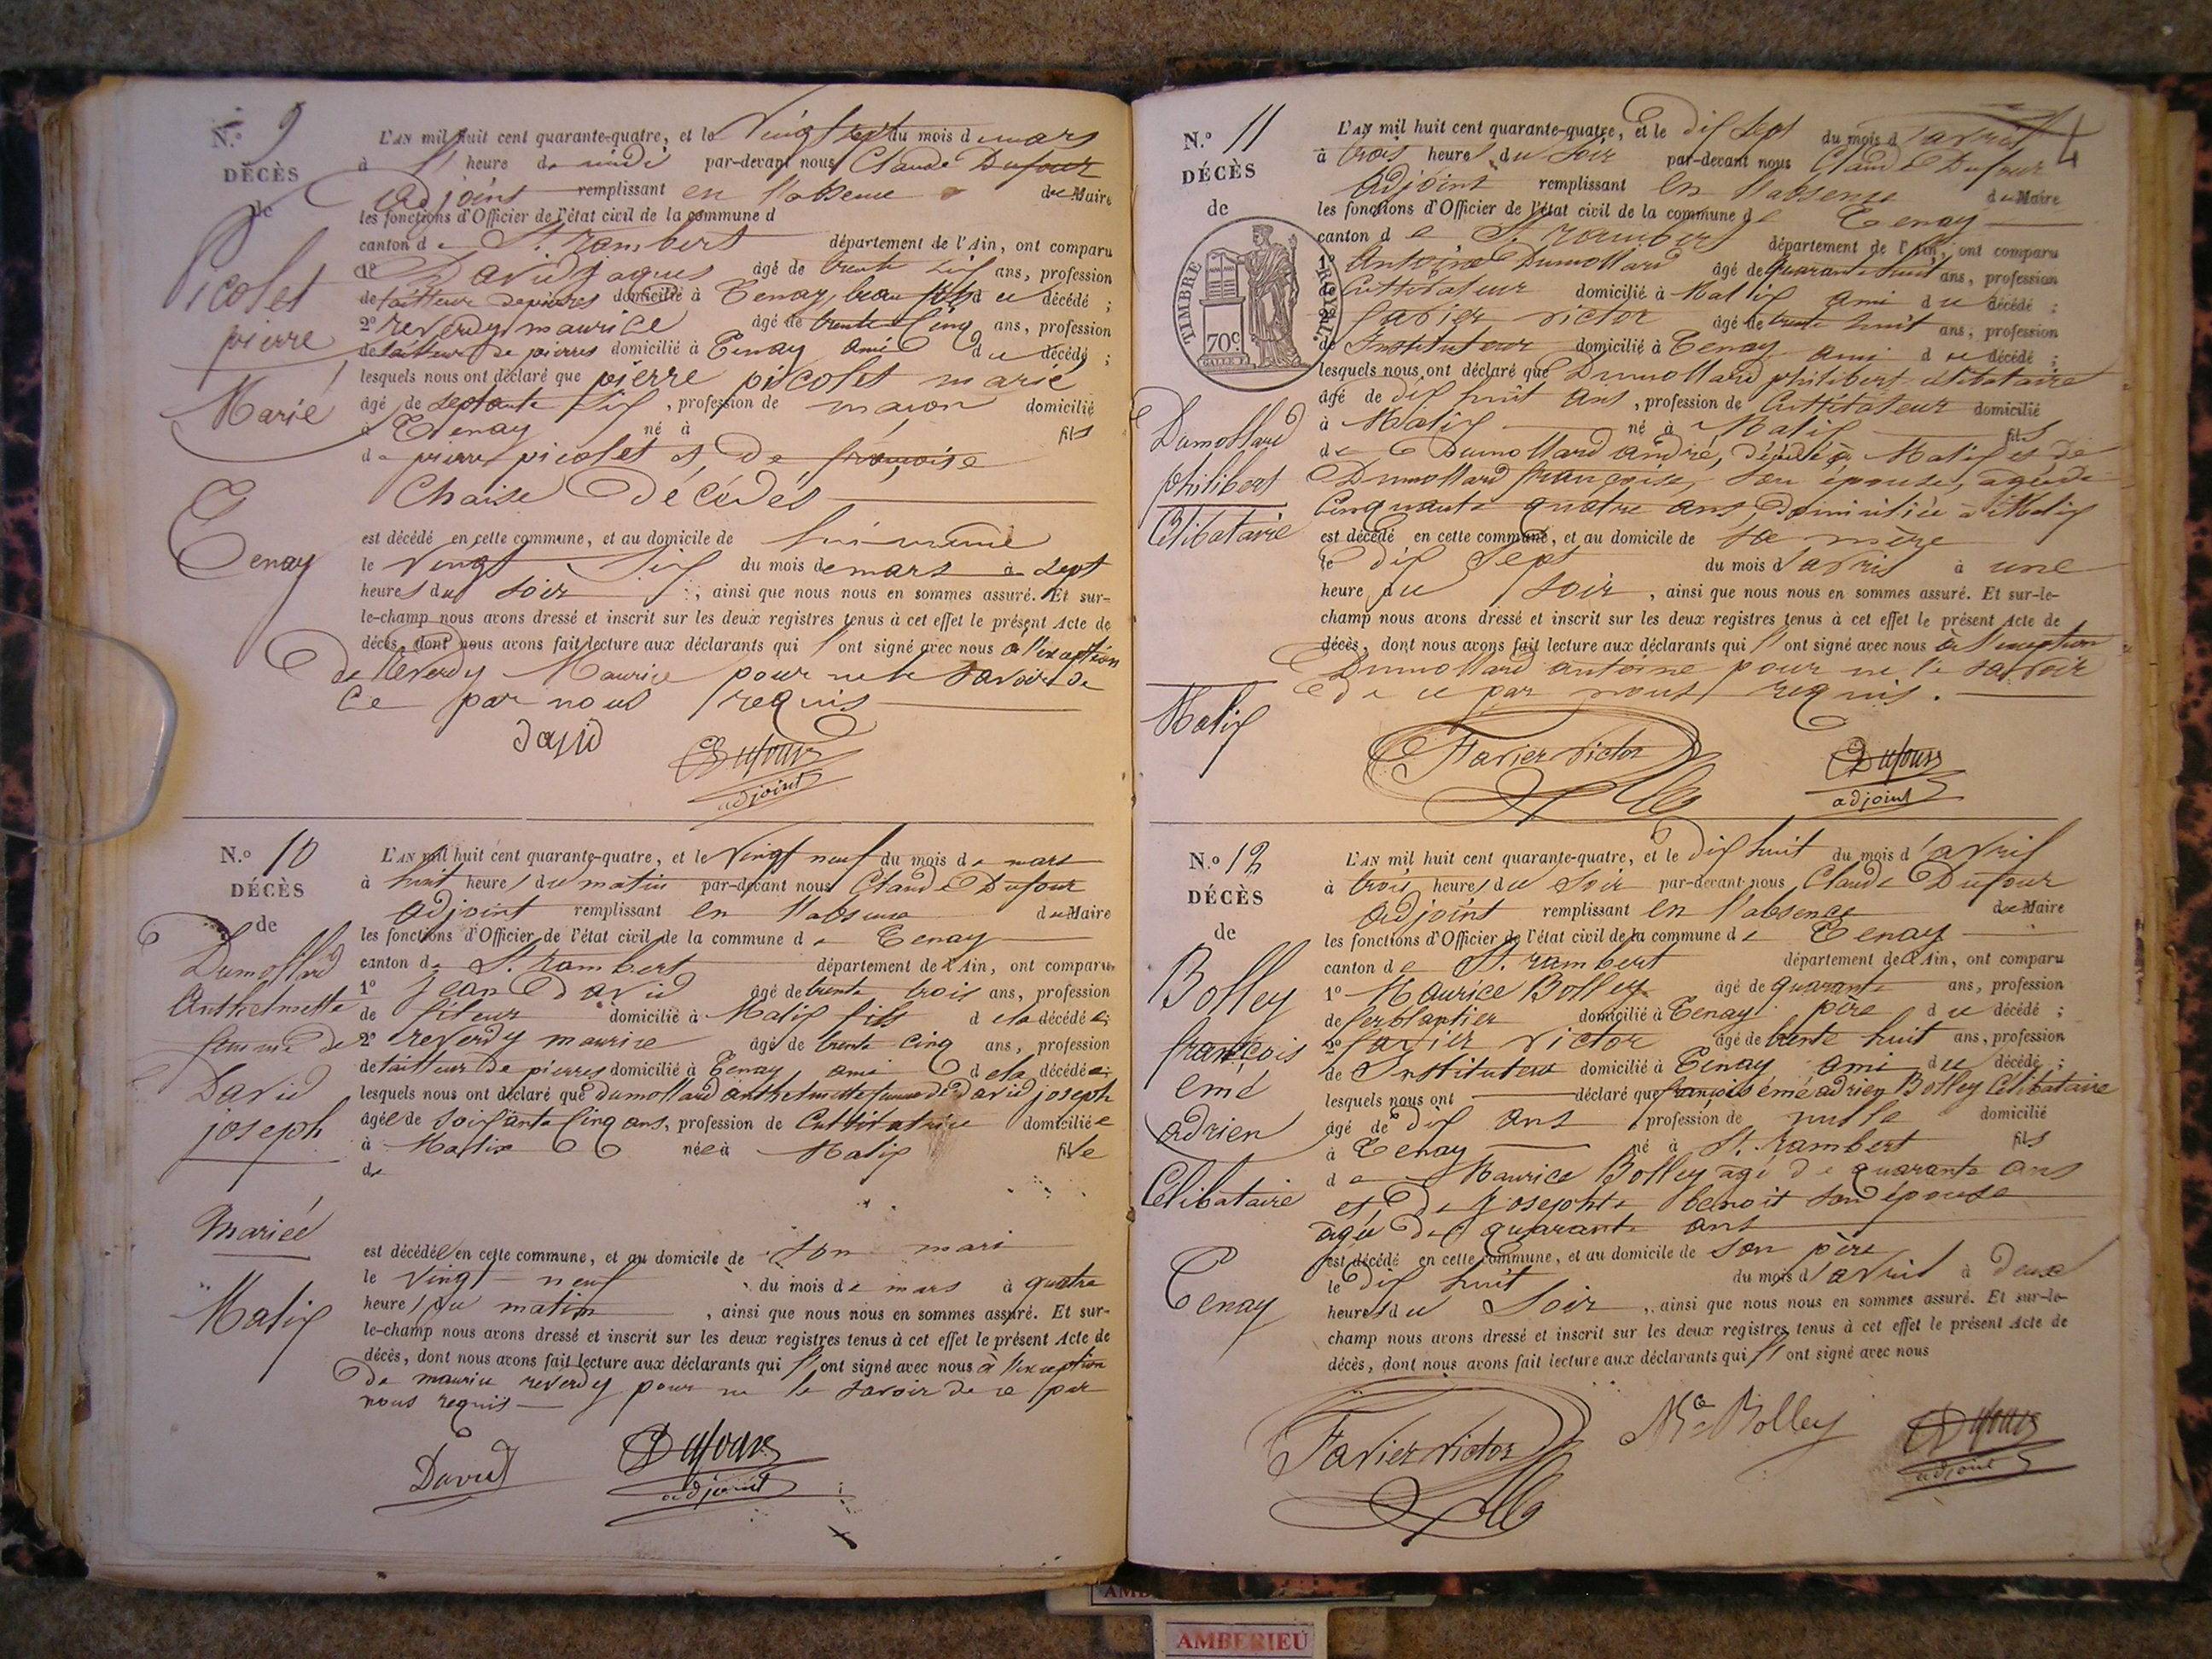 N.° 9
DÉCÈS
de
Picolet
pierre
Marié
Tenay
L'AN mil huit cent quarante-quatre, et le Vingt sept du mois de mars
à l' heure de midi par-devant nous Claude Dufour
adjoint remplissant en l'absence du Maire
les fonctions d'Officier de l'état civil de la commune d
canton de St. rambert département de l'Ain, ont comparu
1° David jaques âgé de trente six ans, profession
de tailleur de pierres domicilié à Tenay, beau fils du décédé ;
2° reverdy maurice âgé de trente cinq ans, profession
de tailleur de pierres domicilié à Tenay ami du décédé ;
lesquels nous ont déclaré que pierre picolet marié
âgé de septante six, profession de maçon domicilié
à Tenay né à fils
de pierre picolet et De françoise
Chaise Décédés
est décédé en cette commune, et au domicile de lui même
le vingt six du mois de mars à sept
heures du soir, ainsi que nous nous en sommes assuré. Et sur-
le-champ nous avons dressé et inscrit sur les deux registres tenus à cet effet le présent Acte de
décès, dont nous avons fait lecture aux déclarants qui l'ont signé avec nous à l'exception
de Reverdy Maurice pour ne le savoir de
ce par nous requis
David Dufour
adjoint
N.° 10
DÉCÈS
de
Dumollard
Anthelmette
femme de
David
joseph
Mariée
Malix
L'AN mil huit cent quarante-quatre, et le Vingt neuf du mois de mars
à huit heures du matin par-devant nous Claude Dufour
adjoint remplissant en l'absence du Maire
les fonctions d'Officier de l'état civil de la commune de Tenay
canton de St. rambert département de l'Ain, ont comparu
1° Jean David âgé de trente trois ans, profession
de domicilié à Malix fils de la décédée
2° reverdy maurice âgé de trente cinq ans, profession
de tailleur de pierres domicilié à Tenay ami de la décédée
lesquels nous ont déclaré que Dumollard anthelmette femme de David joseph
âgée de soixante cinq ans, profession de Cultivatrice domiciliée
à Malix née à Malix fille
de
est décédée en cette commune, et au domicile de son mari
le vingt neuf du mois de mars à quatre
heures du matin, ainsi que nous nous en sommes assuré. Et sur-
le-champ nous avons dressé et inscrit sur les deux registres tenus à cet effet le présent Acte de
décès, dont nous avons fait lecture aux déclarants qui l'ont signé avec nous à l'exception
de maurice reverdy pour ne le savoir de ce par
nous requis
David Dufour
adjoint
4
N.° 11
DÉCÈS
de
TIMBRE ROYAL
70c
Dumollard
philibert
Célibataire
Malix
L'AN mil huit cent quarante-quatre, et le dix sept du mois d'avril
à trois heures du soir par-devant nous Claude Dufour
adjoint remplissant en l'absence du Maire
les fonctions d'Officier de l'état civil de la commune de Tenay
canton de St. rambert département de l'Ain, ont comparu
1° Antoine Dumollard âgé de quarante huit ans, profession
de Cultivateur domicilié à Malix ami du décédé ;
2° favier victor âgé de trente huit ans, profession
de Instituteur domicilié à Tenay ami du décédé ;
lesquels nous ont déclaré que Dumollard philibert célibataire
âgé de dix huit ans, profession de Cultivateur domicilié
à Malix né à Malix fils
de Dumollard andré, décédé à Malix et de
Dumollard françoise, son épouse, agée de
Cinquante quatre ans, domiciliée à Malix
est décédé en cette commune, et au domicile de sa mère
le dix sept du mois d'avril à une
heure du soir, ainsi que nous nous en sommes assuré. Et sur-le-
champ nous avons dressé et inscrit sur les deux registres tenus à cet effet le présent Acte de
décès, dont nous avons fait lecture aux déclarants qui l'ont signé avec nous à l'exception
Dumollard antoine pour ne le savoir
de ce par nous requis.
Favier victor Dufour
adjoint
N.° 12
DÉCÈS
de
Bolley
françois
emé
adrien
Célibataire
Tenay
L'AN mil huit cent quarante-quatre, et le dix huit du mois d'avril
à trois heures du soir par-devant nous Claude Dufour
adjoint remplissant en l'absence du Maire
les fonctions d'Officier de l'état civil de la commune de Tenay
canton de St. rambert département de l'Ain, ont comparu
1° Maurice Bolley âgé de quarante ans, profession
de ferblantier domicilié à Tenay père du décédé ;
2° favier victor âgé de trente huit ans, profession
de Instituteur domicilié à Tenay ami du décédé ;
lesquels nous ont déclaré que françois émé adrien Bolley Célibataire
âgé de dix ans profession de nulle domicilié
à Tenay né à St. rambert fils
de Maurice Bolley agé de quarante ans
et De Josephte benoit son épouse
agée de quarante ans
est décédé en cette commune, et au domicile de son père
le dix huit du mois d'avril à deux
heures du soir, ainsi que nous nous en sommes assuré. Et sur-le-
champ nous avons dressé et inscrit sur les deux registres tenus à cet effet le présent Acte de
décès, dont nous avons fait lecture aux déclarants qui l'ont signé avec nous
Favier victor Mce Bolley Dufour
adjoint
AMBERIEU